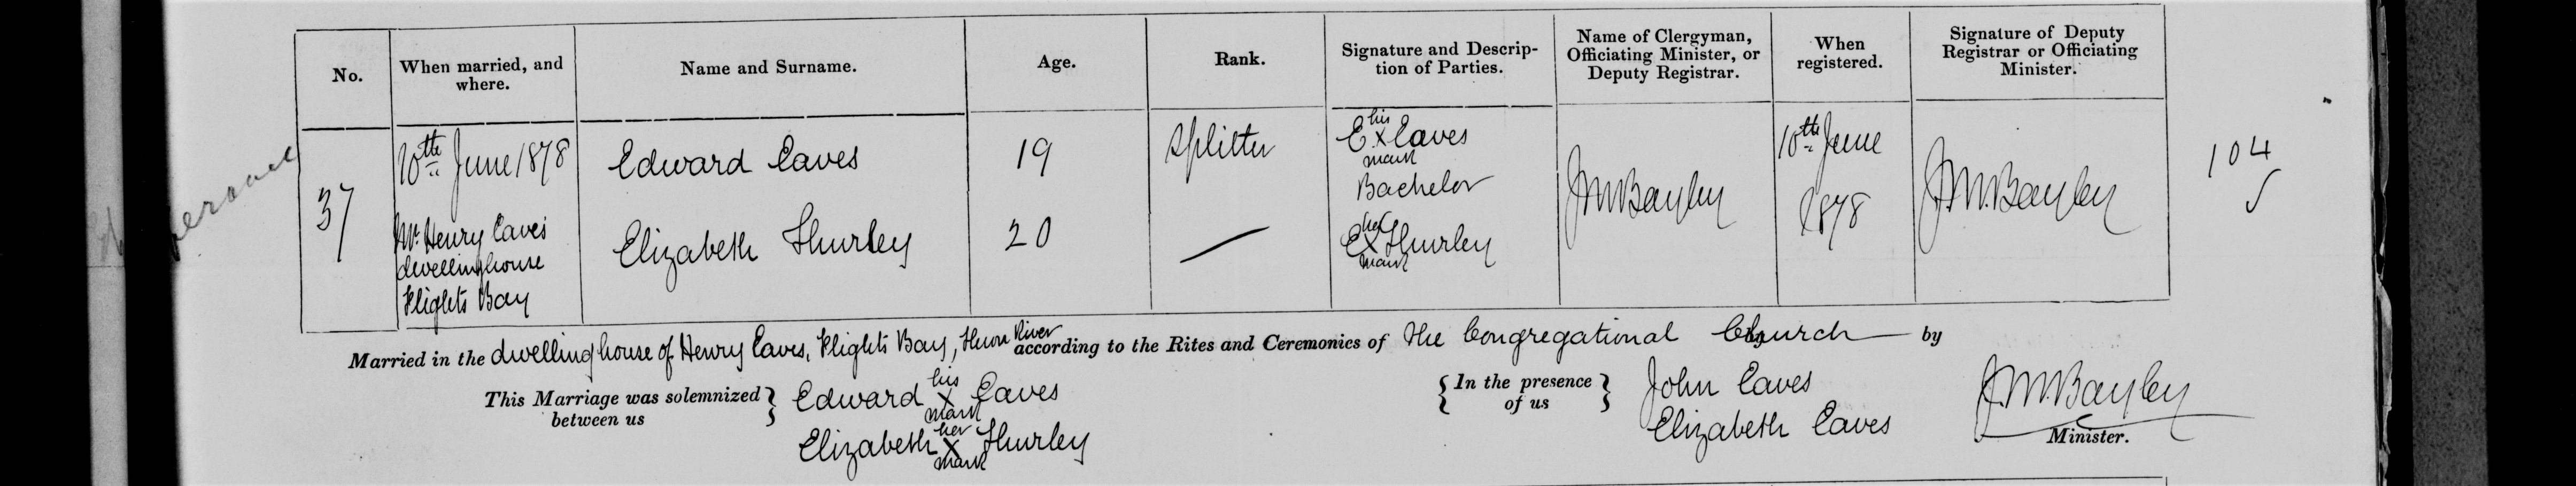 No.
When married, and where.
Name and Surname.
Age.
Rank.
Signature and Descrip-
tion of Parties.
Name of Clergyman,
Officiating Minister, or
Deputy Registrar.
When
registered.
Signature of Deputy
Registrar or Officiating
Minister.
37
10th June 1878
Mr Henry Eaves
dwelling house
Flights Bay
Edward Eaves
Elizabeth Thurley
19
20
Splitter
his
E X Eaves
mark
Bachelor
her
E X Thurley
mark
J.M. Bayley
10th June
1878
J.M. Bayley
104
Married in the dwelling house of Henry Eaves, Flights Bay, Huon River according to the Rites and Ceremonies of The Congregational Church by
This Marriage was solemnized between us
Edward his X mark Eaves
Elizabeth her X mark Thurley
In the presence of us
John Eaves
Elizabeth Eaves
J.M. Bayley
Minister.